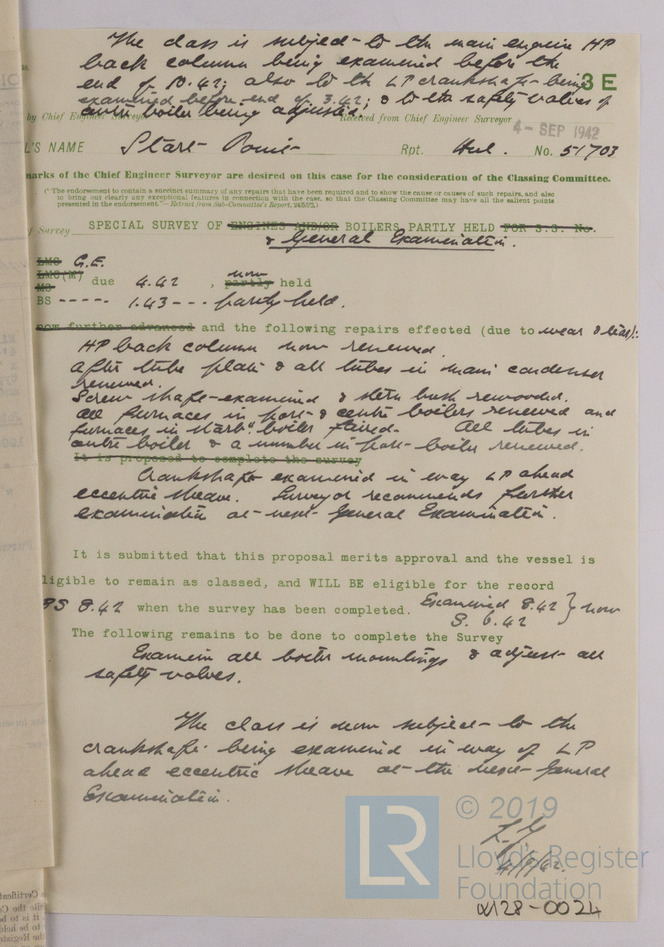 The class is subject to the main engine HP
back column being examined before the
end of 10.42; also to the LP crankshaft being
examined before end of 3.42; & to the safety valves of
centre boiler being adjusted.
3 E
by Chief Engineer Surveyor
Received from Chief Engineer Surveyor
4 - SEP 1942
L'S NAME Start Point Rpt. Hul. No. 51703
marks of the Chief Engineer Surveyor are desired on this case for the consideration of the Classing Committee.
(“The endorsement to contain a succinct summary of any repairs that have been required and to show the cause or causes of such repairs, and also
to bring out clearly any exceptional features in connection with the case, so that the Classing Committee may have all the salient points
presented in the endorsement.”—Extract from Sub-Committee's Report,
f Survey SPECIAL SURVEY OF ENGINES AND/OR BOILERS PARTLY HELD FOR S.S. No.
& General Examination.
LMC G.E.
LMC(M) due 4.42, now
MS partly held
BS ----- 1.43 --- partly held.
now further advanced and the following repairs effected (due to wear & tear):-
HP back column now renewed.
After tube plate & all tubes in main condenser
renewed.
Screw shaft examined & stern bush rewooded.
All furnaces in port & centre boilers renewed and
furnaces in starbd boiler faired. All tubes in
centre boiler & a number in port boiler renewed.
It is proposed to complete the survey
Crankshaft examined in way LP ahead
eccentric sheave. Surveyor recommends further
examination at next General Examination.
It is submitted that this proposal merits approval and the vessel is
ligible to remain as classed, and WILL BE eligible for the record
BS 8.42 when the survey has been completed. Examined 8.42 } now
S. 6.42
The following remains to be done to complete the Survey
Examine all boiler mountings & adjust all
safety valves.
The class is now subject to the
crankshaft being examined in way of LP
ahead eccentric sheave at the next General
Examination.
© 2019
LR
Lloyd's Register
Foundation
W128-0024